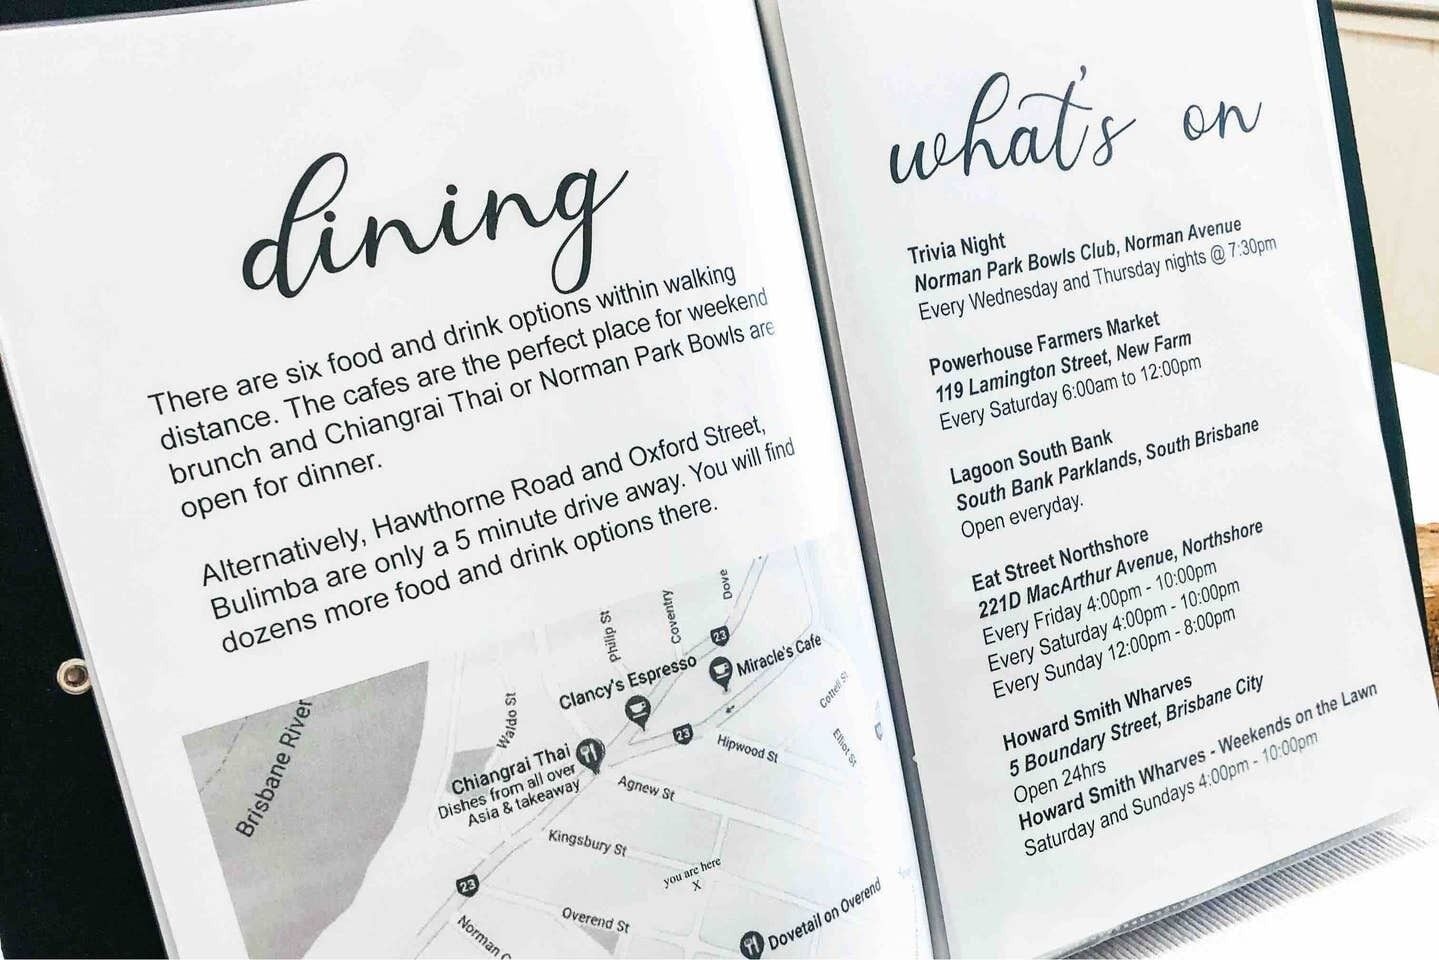 dining
There are six food and drink options within walking
distance. The cafes are the perfect place for weekend
brunch and Chiangrai Thai or Norman Park Bowls are
open for dinner.
Alternatively, Hawthorne Road and Oxford Street,
Bulimba are only a 5 minute drive away. You will find
dozens more food and drink options there.
Brisbane River
Waldo St
Philip St
Coventry
Dove
23
Clancy's Espresso
Miracle's Cafe
Cottell St
Elliot St
23
Hipwood St
Chiangrai Thai
Dishes from all over
Asia & takeaway
Agnew St
Kingsbury St
you are here
X
23
Overend St
Norman C
Dovetail on Overend
what's on
Trivia Night
Norman Park Bowls Club, Norman Avenue
Every Wednesday and Thursday nights @ 7:30pm
Powerhouse Farmers Market
119 Lamington Street, New Farm
Every Saturday 6:00am to 12:00pm
Lagoon South Bank
South Bank Parklands, South Brisbane
Open everyday.
Eat Street Northshore
221D MacArthur Avenue, Northshore
Every Friday 4:00pm - 10:00pm
Every Saturday 4:00pm - 10:00pm
Every Sunday 12:00pm - 8:00pm
Howard Smith Wharves
5 Boundary Street, Brisbane City
Open 24hrs
Howard Smith Wharves - Weekends on the Lawn
Saturday and Sundays 4:00pm - 10:00pm